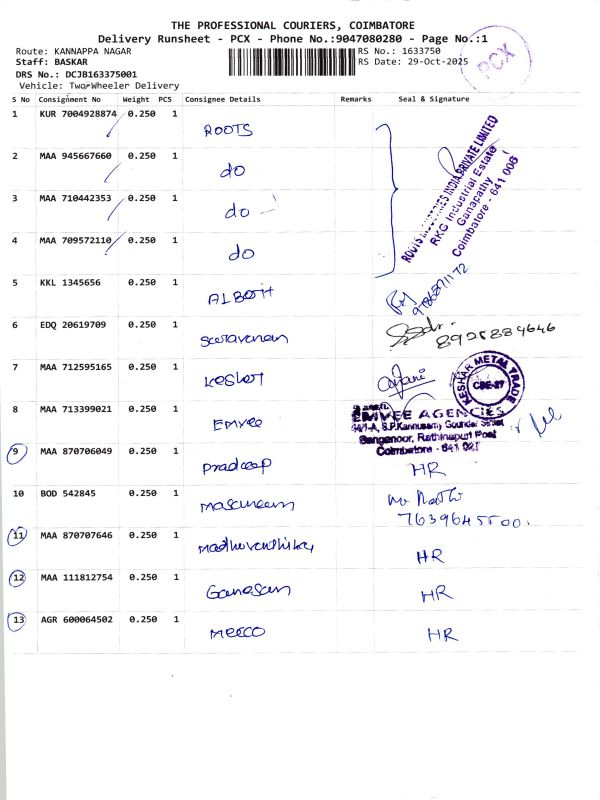 THE PROFESSIONAL COURIERS, COIMBATORE
Delivery Runsheet - PCX - Phone No.:9047080280 - Page No.:1
PCX
Route: KANNAPPA NAGAR
RS No.: 1633750
Staff: BASKAR
RS Date: 29-Oct-2025
DRS No.: DCJB163375001
Vehicle: Two Wheeler Delivery
S No Consignment No Weight PCS Consignee Details Remarks Seal & Signature
1 KUR 7004928874 0.250 1 ROOTS
ROOTS INDUSTRIES INDIA PRIVATE LIMITED
RKG Industrial Estate
Ganapathy
Coimbatore - 641 006
2 MAA 945667660 0.250 1 do
3 MAA 710442353 0.250 1 do
4 MAA 709572110 0.250 1 do
5 KKL 1345656 0.250 1 ALBOTH
6 EDQ 20619709 0.250 1 Saravanan 8925884646
7 MAA 712595165 0.250 1 Keshar
KESHAR METAL TRADE
CBE-27
8 MAA 713399021 0.250 1 Emvee
EMVEE AGENCIES
S.P.Kannusamy Gounder Street
Sanganoor, Rathinapuri Post
Coimbatore - 641 027
9 MAA 870706049 0.250 1 Pradeep HR
10 BOD 542845 0.250 1
7639645500
11 MAA 870707646 0.250 1 Madhuvanthika HR
12 MAA 111812754 0.250 1 Ganesan HR
13 AGR 600064502 0.250 1 Mecco HR